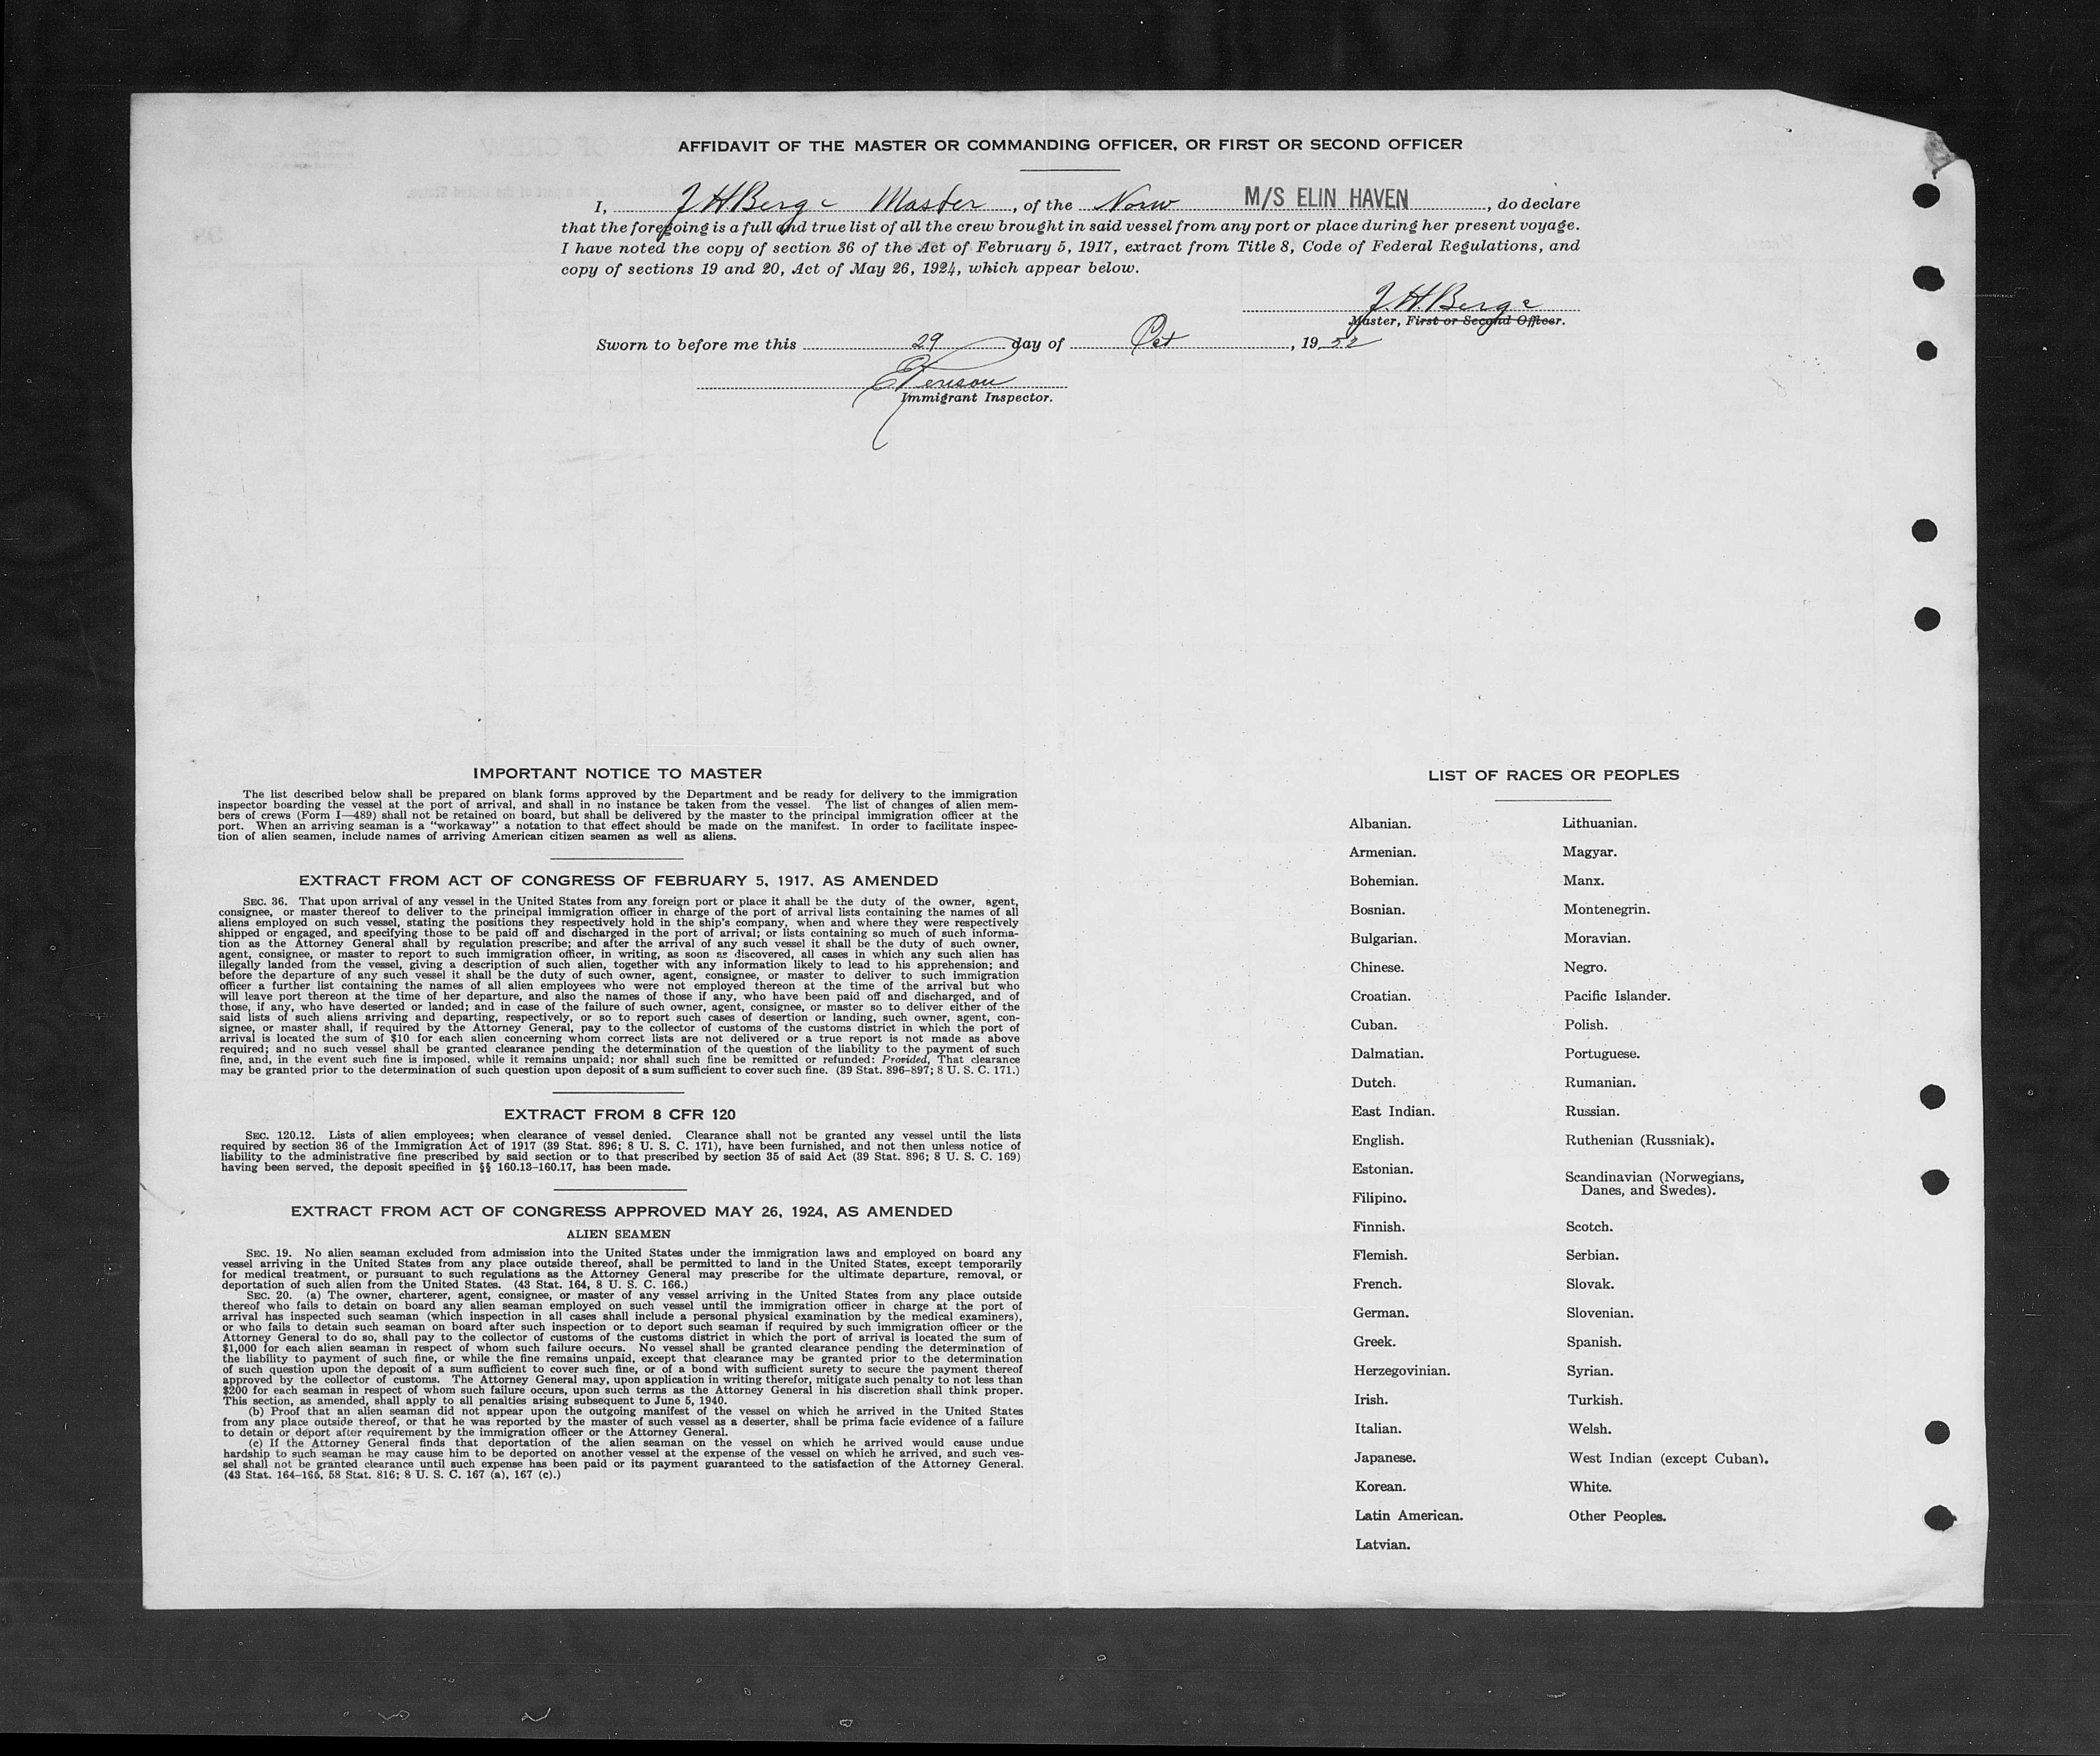 AFFIDAVIT OF THE MASTER OR COMMANDING OFFICER, OR FIRST OR SECOND OFFICER
I, J H Berge Master, of the Norw M/S ELIN HAVEN, do declare
that the foregoing is a full and true list of all the crew brought in said vessel from any port or place during her present voyage.
I have noted the copy of section 36 of the Act of February 5, 1917, extract from Title 8, Code of Federal Regulations, and
copy of sections 19 and 20, Act of May 26, 1924, which appear below.
J. H. Berge
Master, First or Second Officer.
Sworn to before me this 29 day of Oct, 19 52
Immigrant Inspector.
IMPORTANT NOTICE TO MASTER
The list described below shall be prepared on blank forms approved by the Department and be ready for delivery to the immigration
inspector boarding the vessel at the port of arrival, and shall in no instance be taken from the vessel. The list of changes of alien mem-
bers of crews (Form I—489) shall not be retained on board, but shall be delivered by the master to the principal immigration officer at the
port. When an arriving seaman is a "workaway" a notation to that effect should be made on the manifest. In order to facilitate inspec-
tion of alien seamen, include names of arriving American citizen seamen as well as aliens.
EXTRACT FROM ACT OF CONGRESS OF FEBRUARY 5, 1917, AS AMENDED
SEC. 36. That upon arrival of any vessel in the United States from any foreign port or place it shall be the duty of the owner, agent,
consignee, or master thereof to deliver to the principal immigration officer in charge of the port of arrival lists containing the names of all
aliens employed on such vessel, stating the positions they respectively hold in the ship's company, when and where they were respectively
shipped or engaged, and specifying those to be paid off and discharged in the port of arrival; or lists containing so much of such informa-
tion as the Attorney General shall by regulation prescribe; and after the arrival of any such vessel it shall be the duty of such owner,
agent, consignee, or master to report to such immigration officer, in writing, as soon as discovered, all cases in which any such alien has
illegally landed from the vessel, giving a description of such alien, together with any information likely to lead to his apprehension; and
before the departure of any such vessel it shall be the duty of such owner, agent, consignee, or master to deliver to such immigration
officer a further list containing the names of all alien employees who were not employed thereon at the time of the arrival but who
will leave port thereon at the time of her departure, and also the names of those if any, who have been paid off and discharged, and of
those, if any, who have deserted or landed; and in case of the failure of such owner, agent, consignee, or master so to deliver either of the
said lists of such aliens arriving and departing, respectively, or so to report such cases of desertion or landing, such owner, agent, con-
signee, or master shall, if required by the Attorney General, pay to the collector of customs of the customs district in which the port of
arrival is located the sum of $10 for each alien concerning whom correct lists are not delivered or a true report is not made as above
required; and no such vessel shall be granted clearance pending the determination of the question of the liability to the payment of such
fine, and, in the event such fine is imposed, while it remains unpaid; nor shall such fine be remitted or refunded: Provided, That clearance
may be granted prior to the determination of such question upon deposit of a sum sufficient to cover such fine. (39 Stat. 896-897; 8 U. S. C. 171.)
EXTRACT FROM 8 CFR 120
SEC. 120.12. Lists of alien employees; when clearance of vessel denied. Clearance shall not be granted any vessel until the lists
required by section 36 of the Immigration Act of 1917 (39 Stat. 896; 8 U. S. C. 171), have been furnished, and not then unless notice of
liability to the administrative fine prescribed by said section or to that prescribed by section 35 of said Act (39 Stat. 896; 8 U. S. C. 169)
having been served, the deposit specified in §§ 160.13-160.17, has been made.
EXTRACT FROM ACT OF CONGRESS APPROVED MAY 26, 1924, AS AMENDED
ALIEN SEAMEN
SEC. 19. No alien seaman excluded from admission into the United States under the immigration laws and employed on board any
vessel arriving in the United States from any place outside thereof, shall be permitted to land in the United States, except temporarily
for medical treatment, or pursuant to such regulations as the Attorney General may prescribe for the ultimate departure, removal, or
deportation of such alien from the United States. (43 Stat. 164, 8 U. S. C. 166.)
SEC. 20. (a) The owner, charterer, agent, consignee, or master of any vessel arriving in the United States from any place outside
thereof who fails to detain on board any alien seaman employed on such vessel until the immigration officer in charge at the port of
arrival has inspected such seaman (which inspection in all cases shall include a personal physical examination by the medical examiners),
or who fails to detain such seaman on board after such inspection or to deport such seaman if required by such immigration officer or the
Attorney General to do so, shall pay to the collector of customs of the customs district in which the port of arrival is located the sum of
$1,000 for each alien seaman in respect of whom such failure occurs. No vessel shall be granted clearance pending the determination of
the liability to payment of such fine, or while the fine remains unpaid, except that clearance may be granted prior to the determination
of such question upon the deposit of a sum sufficient to cover such fine, or of a bond with sufficient surety to secure the payment thereof
approved by the collector of customs. The Attorney General may, upon application in writing therefor, mitigate such penalty to not less than
$200 for each seaman in respect of whom such failure occurs, upon such terms as the Attorney General in his discretion shall think proper.
This section, as amended, shall apply to all penalties arising subsequent to June 5, 1940.
(b) Proof that an alien seaman did not appear upon the outgoing manifest of the vessel on which he arrived in the United States
from any place outside thereof, or that he was reported by the master of such vessel as a deserter, shall be prima facie evidence of a failure
to detain or deport after requirement by the immigration officer or the Attorney General.
(c) If the Attorney General finds that deportation of the alien seaman on the vessel on which he arrived would cause undue
hardship to such seaman he may cause him to be deported on another vessel at the expense of the vessel on which he arrived, and such ves-
sel shall not be granted clearance until such expense has been paid or its payment guaranteed to the satisfaction of the Attorney General.
(43 Stat. 164-165, 58 Stat. 816; 8 U. S. C. 167 (a), 167 (c).)
LIST OF RACES OR PEOPLES
Albanian.
Armenian.
Bohemian.
Bosnian.
Bulgarian.
Chinese.
Croatian.
Cuban.
Dalmatian.
Dutch.
East Indian.
English.
Estonian.
Filipino.
Finnish.
Flemish.
French.
German.
Greek.
Herzegovinian.
Irish.
Italian.
Japanese.
Korean.
Latin American.
Latvian.
Lithuanian.
Magyar.
Manx.
Montenegrin.
Moravian.
Negro.
Pacific Islander.
Polish.
Portuguese.
Rumanian.
Russian.
Ruthenian (Russniak).
Scandinavian (Norwegians,
Danes, and Swedes).
Scotch.
Serbian.
Slovak.
Slovenian.
Spanish.
Syrian.
Turkish.
Welsh.
West Indian (except Cuban).
White.
Other Peoples.